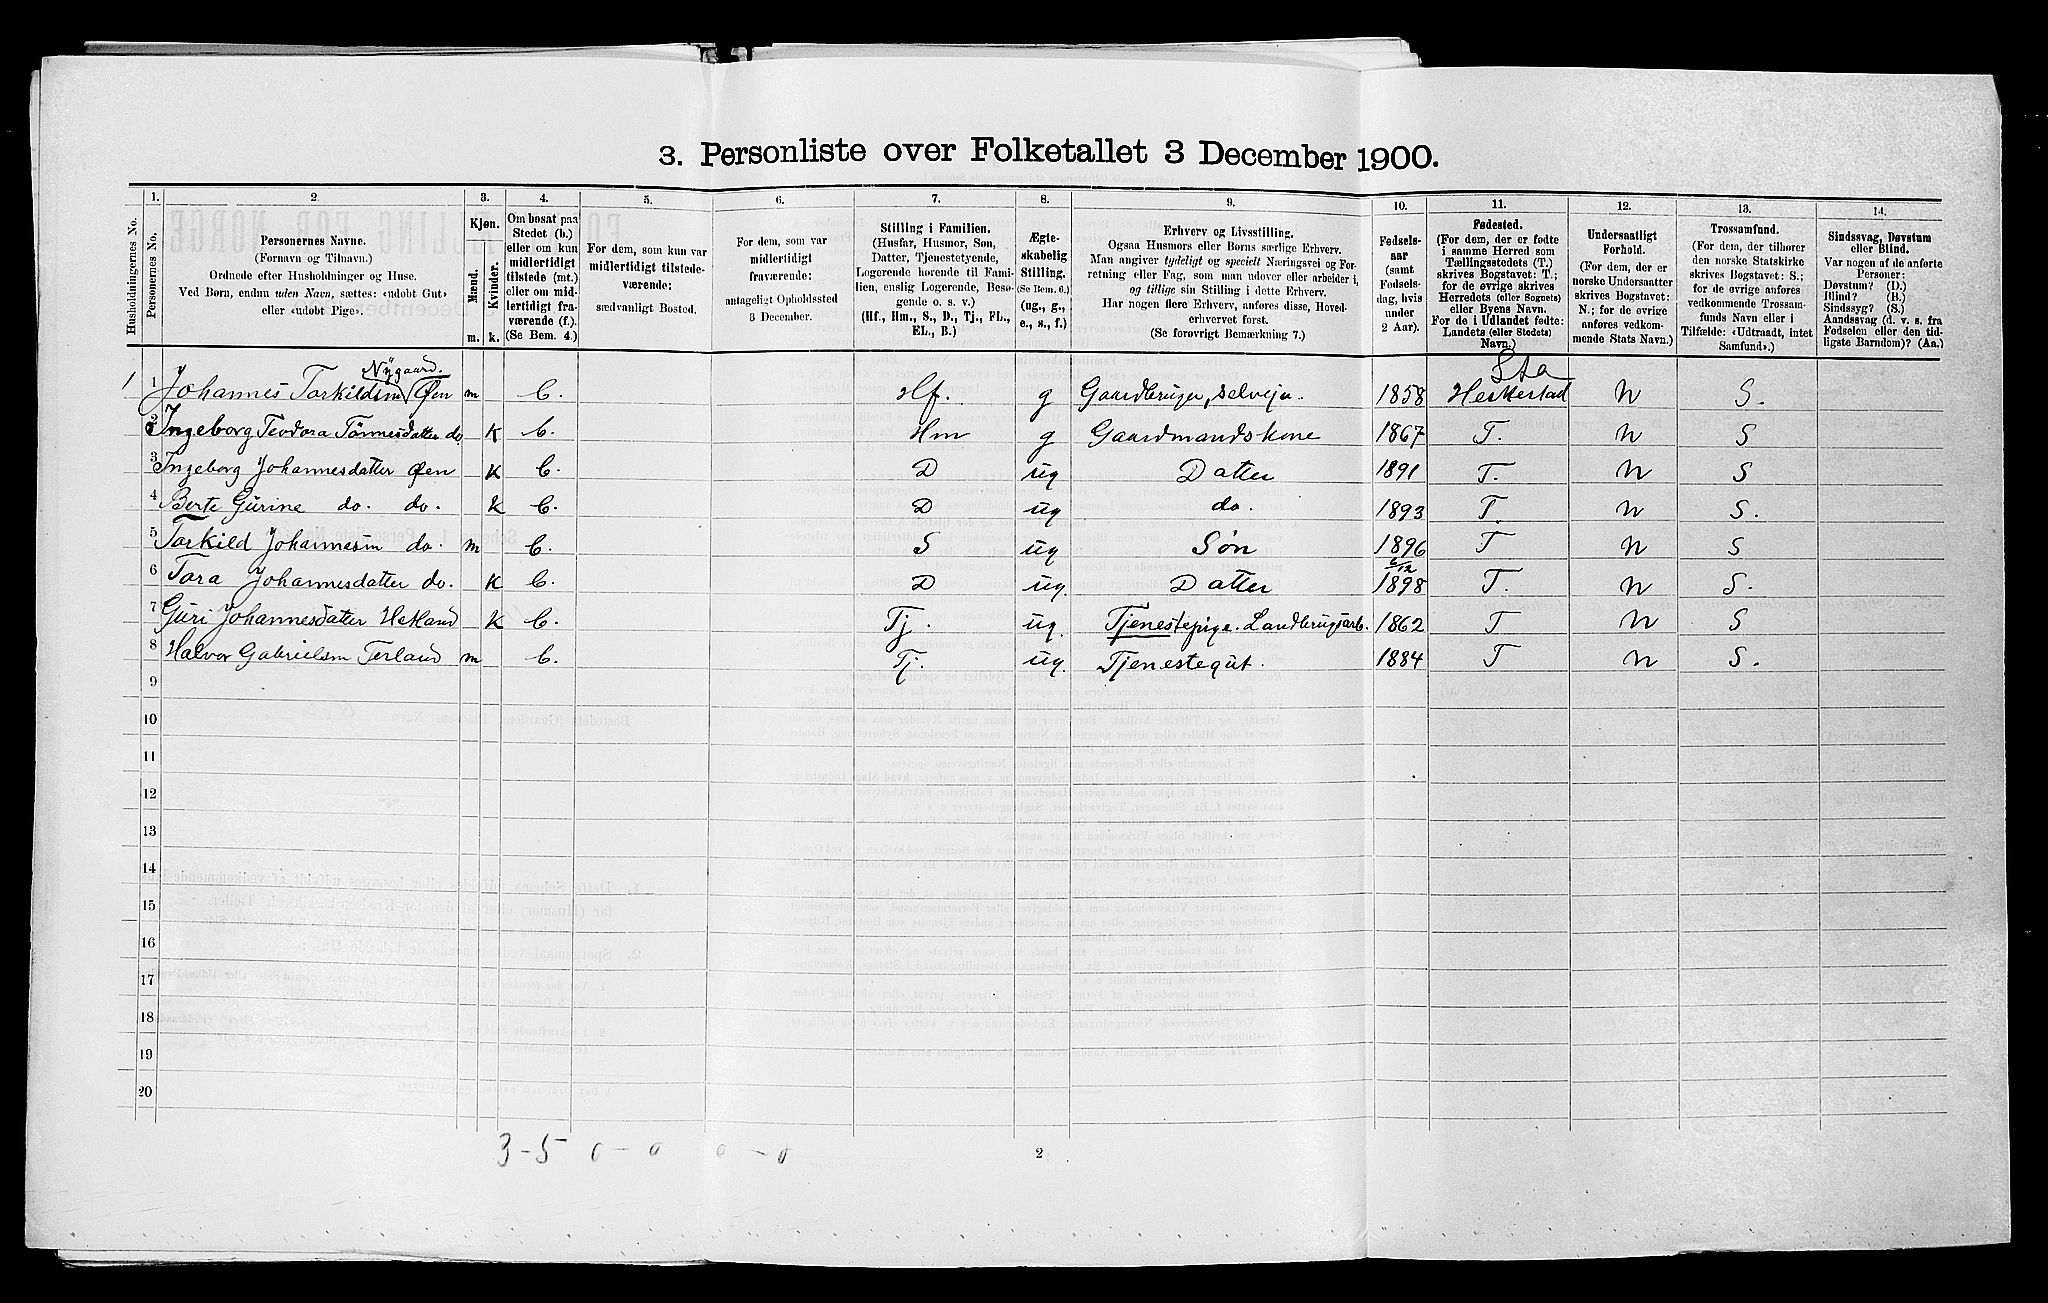 3. Personliste over Folketallet 3 December 1900.
1. 2. 3. 4. 5. 6. 7. 8. 9. 10. 11. 12. 13. 14.
Husholdningernes No.
Personernes No.
Personernes Navne.
(Fornavn og Tilnavn.)
Ordnede efter Husholdninger og Huse.
Ved Børn, endnu uden Navn, sættes: «udøbt Gut»
eller «udøbt Pige».
Kjøn.
Mænd. Kvinder.
m. k.
Om bosat paa
Stedet (b.)
eller om kun
midlertidigt
tilstede (mt.)
eller om mid-
lertidigt fra-
værende (f.).
(Se Bem. 4.)
For dem, som kun var
midlertidigt tilstede-
værende:
sædvanligt Bosted.
For dem, som var
midlertidigt
fraværende:
antageligt Opholdssted
3 December.
Stilling i Familien.
(Husfar, Husmor, Søn,
Datter, Tjenestetyende,
Logerende hørende til Fami-
lien, enslig Logerende, Besø-
gende o. s. v.)
(Hf., Hm., S., D., Tj., FL.,
EL., B.)
Ægte-
skabelig
Stilling.
(Se Bem. 6.)
(ug., g.,
e., s., f.)
Erhverv og Livsstilling.
Ogsaa Husmors eller Børns særlige Erhverv.
Man angiver tydeligt og specielt Næringsvei og For-
retning eller Fag, som man udover eller arbeider i,
og tillige sin Stilling i dette Erhverv.
Har nogen flere Erhverv, anføres disse, Hoved-
erhvervet først.
(Se forøvrigt Bemærkning 7.)
Fødsels-
aar
(samt
Fødsels-
dag, hvis
under
2 Aar).
Fødested.
(For dem, der er fødte
i samme Herred som
Tællingsstedets (T.)
skrives Bogstavet: T.;
for de øvrige skrives
Herredets (eller Sognets)
eller Byens Navn.
For de i Udlandet fødte:
Landets (eller Stedets)
Navn.)
Undersaatligt
Forhold.
(For dem, der er
norske Undersaatter
skrives Bogstavet:
N.; for de øvrige
anføres vedkom-
mende Stats Navn.)
Trossamfund.
(For dem, der tilhører
den norske Statskirke
skrives Bogstavet: S.;
for de øvrige anføres
vedkommende Trossam-
funds Navn eller i
Tilfælde: «Udtraadt, intet
Samfund».)
Sindssvag, Døvstum
eller Blind.
Var nogen af de anførte
Personer:
Døvstum? (D.)
Blind? (B.)
Sindssyg? (S.)
Aandssvag (d. v. s. fra
Fødselen eller den tid-
ligste Barndom)? (Aa.)
Nygaard. Sta
1 1 Johannes Torkildsen (Øen m b. Hf. g Gaardbruger, selveier. 1858 Heskestad N S.
2 Ingeborg Teodora Tønnesdatter do K b. Hm g Gaardmandskone 1867 T. N S
3 Ingeborg Johannesdatter Øen K b. D ug Datter 1891 T. N S
4 Berte Gurine do. do. K b. D ug do. 1893 T. N S.
5 Torkild Johannesen do. m b. S ug Søn 1896 T N S
6 Tora Johannesdatter do. K b. D ug. Datter 6/12 1898 T. N S.
7 Guri Johannesdatter Hetland K b. Tj. ug. Tjenestepige. Landbrugsarb. 1862 T N S
8 Halvor Gabrielsen Terland m b. Tj. ug. Tjenestegut. 1884 T N S.
9
10
11
12
13
14
15
16
17
18
19
20
3-5 0-0 0-0
2